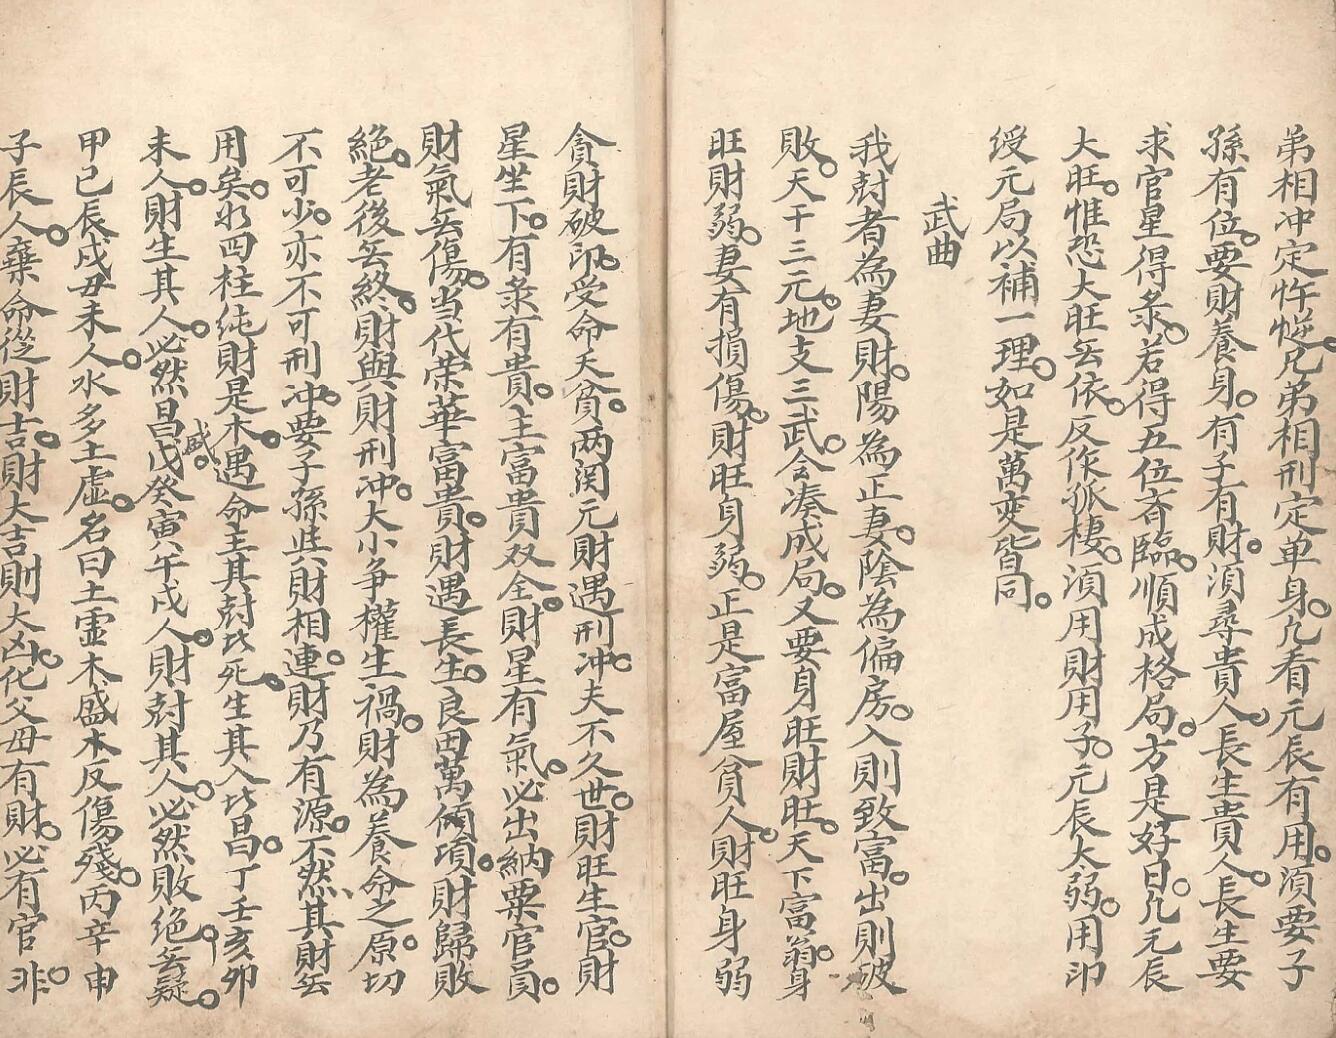 弟相冲定忤逆。兄弟相刑定单身。凢看元辰有用。須要子
孫有位。要財養身。有子有財。須尋貴人。長生貴人。長生要
求官星得彔。若得五位斉臨。順成格局。方是好日。凢元辰
大旺。惟恐大旺무依。反作孤棲。須用財用子。元辰太弱。用印
綬元局以補一理。如是萬变皆同。
武曲
我尅者為妻財。陽為正妻。陰為偏房。入則致富。出則破
敗。天干三元。地支三武。合凑成局。又要身旺財旺。天下富翁。身
旺財弱。妻有損傷。財旺身弱。正是富屋貧人。財旺身弱
貪財破印。受命天貧。两闰元財遇刑冲。夫不久世。財旺生官。財
星坐下。有彔有貴。主富貴双全。財星有氣。必出納粟官員。
財氣无傷。当代荣華富貴。財遇長生。良田萬傾項。財歸敗
絶。老後无終。財與財刑冲。大小争權生禍。財為養命之原。切
不可少。亦不可刑冲。要子孫与財相連。財乃有源。不然其財无
用矣。於四柱純財是木。遇命主其尅比死。生其入比昌。丁壬亥卯
未人。財生其人。必然昌盛。戊癸寅午戌人。財尅其人。必然敗絶无疑。
甲己辰戌丑未人。水多土虚。名曰土虚木盛。木反傷殘。丙辛申
子辰人。棄命從財吉。財大吉則大凶。化父母有財。必有官非。